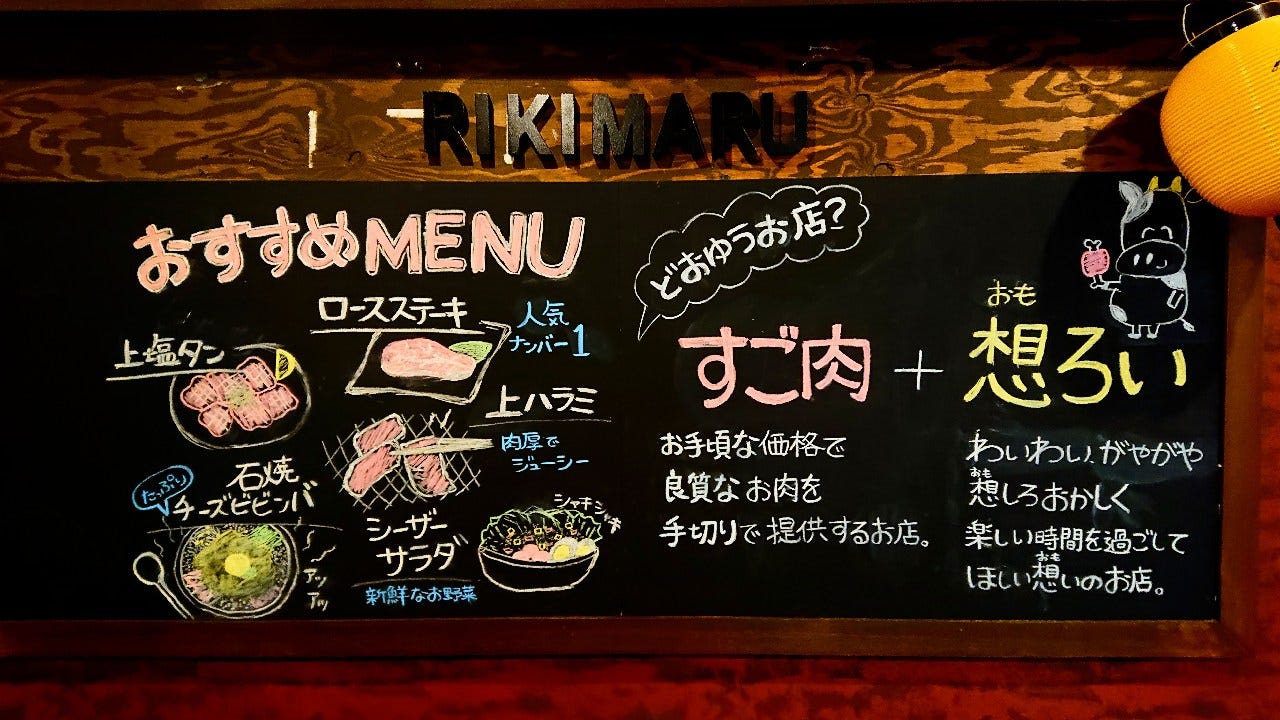 RIKIMARU
おすすめMENU
上塩タン
ロースステーキ
人気
ナンバー1
上ハラミ
肉厚で
ジューシー
たっぷり
石焼
チーズビビンバ
アツ
アツ
シーザー
サラダ
新鮮なお野菜
シャキシャキ
どおゆうお店?
すご肉 + 想ろい
おも
お手頃な価格で
良質なお肉を
手切りで提供するお店。
わいわい、がやがや
おも
想しろおかしく
楽しい時間を過ごして
おも
ほしい想いのお店。